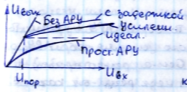 Uвых
Без АРУ
с задержкой
усилени.
идеал.
Прост. АРУ
Uпор.
Uвх
к